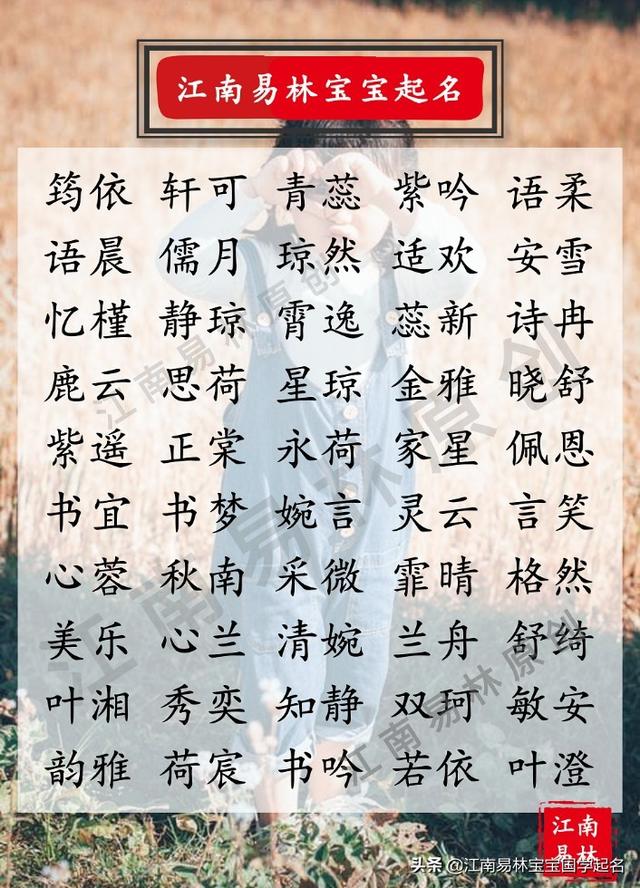 江南易林宝宝起名
筠依 轩可 青蕊 紫吟 语柔
语晨 儒月 琼然 适欢 安雪
忆槿 静琼 霄逸 蕊新 诗冉
鹿云 思荷 星琼 金雅 晓舒
紫遥 正棠 永荷 家星 佩恩
书宜 书梦 婉言 灵云 言笑
心蓉 秋南 采微 霏晴 格然
美乐 心兰 清婉 兰舟 舒绮
叶湘 秀奕 知静 双珂 敏安
韵雅 荷宸 书吟 若依 叶澄
江南易林原创
江南易林原创
江南易林原创
江南
易林
头条 @江南易林宝宝国学起名